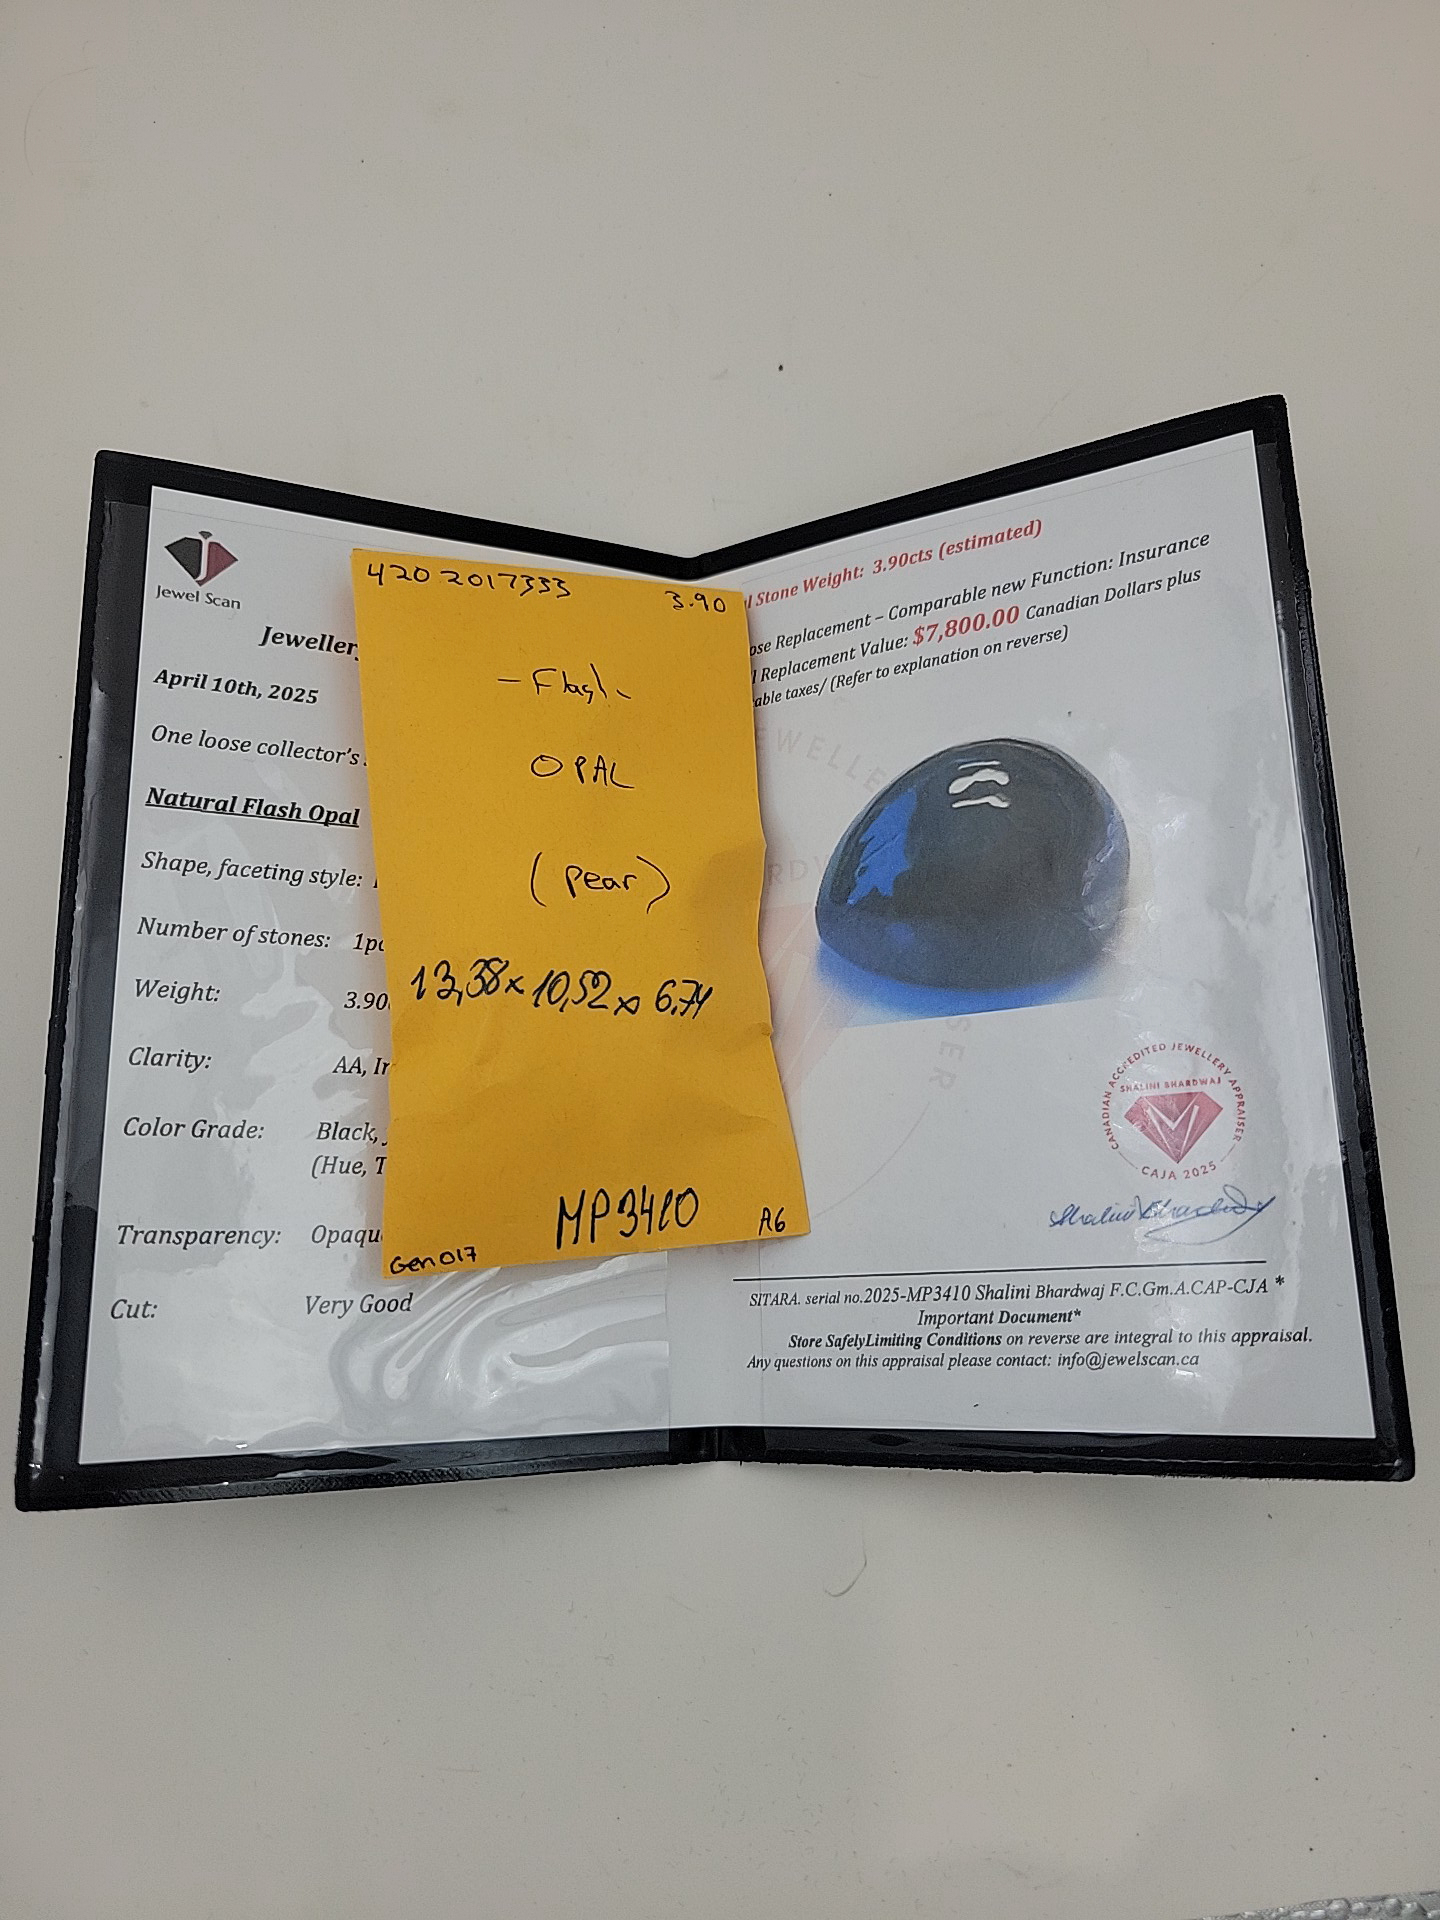 Jewel Scan
Jeweller
April 10th, 2025
One loose collector's
Natural Flash Opal
Shape, faceting style:
Number of stones: 1pc
Weight: 3.90
Clarity: AA, Ir
Color Grade: Black,
(Hue, T
Transparency: Opaqu
Cut: Very Good
420 2017333 3.90
- Flash
OPAL
(pear)
13,38x 10,52 x 6,74
MP3410
A6
Gen017
l Stone Weight: 3.90cts (estimated)
ose Replacement – Comparable new Function: Insurance
l Replacement Value: $7,800.00 Canadian Dollars plus
able taxes/ (Refer to explanation on reverse)
CANADIAN ACCREDITED JEWELLERY APPRAISER
SHALINI BHARDWAJ
CAJA 2025
SITARA. serial no.2025-MP3410 Shalini Bhardwaj F.C.Gm.A.CAP-CJA *
Important Document*
Store SafelyLimiting Conditions on reverse are integral to this appraisal.
Any questions on this appraisal please contact: info@jewelscan.ca